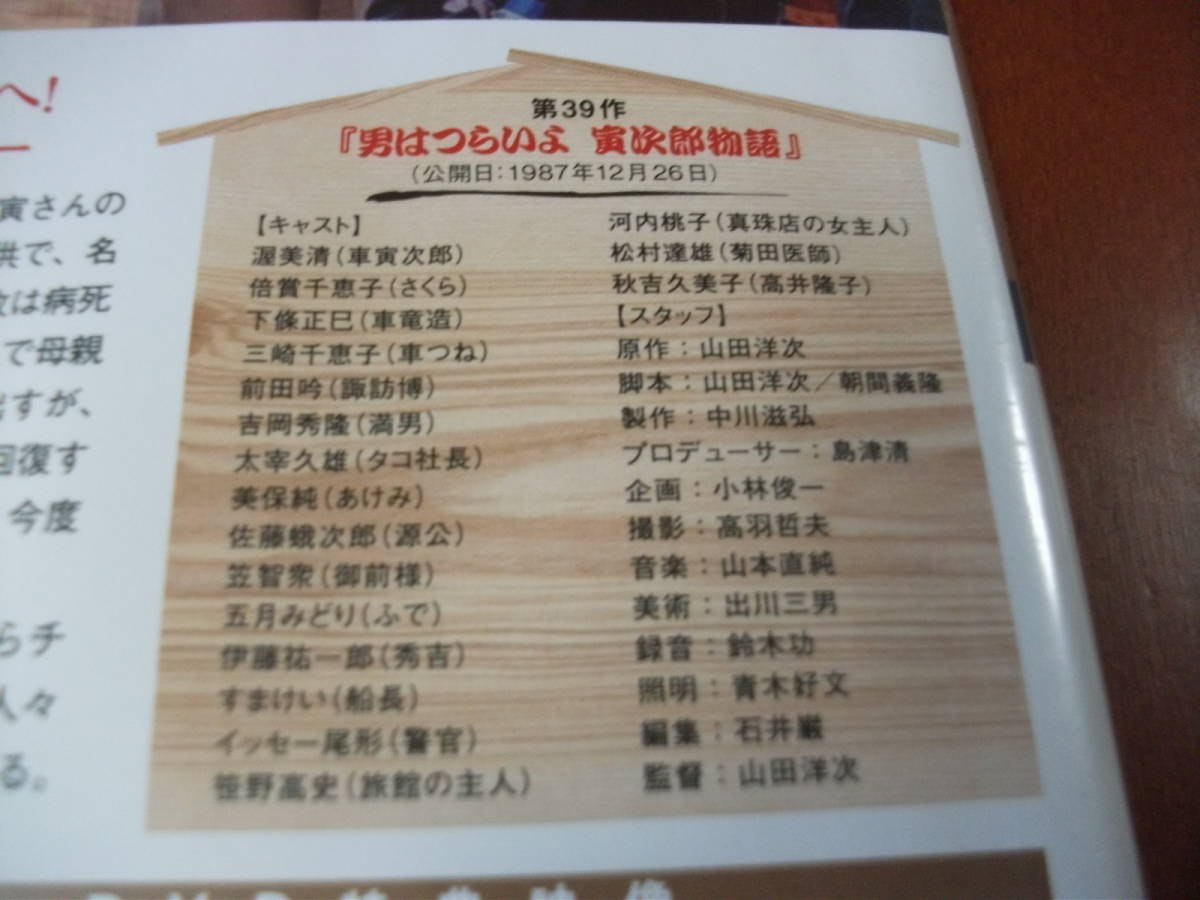 へ!
寅さんの
供で、名
は病死
で母親
出すが、
回復す
今度
らチ
人々
る。
第39作
『男はつらいよ 寅次郎物語』
(公開日:1987年12月26日)
【キャスト】
渥美清(車寅次郎)
倍賞千恵子(さくら)
下條正巳(車竜造)
三崎千恵子(車つね)
前田吟(諏訪博)
吉岡秀隆(満男)
太宰久雄(タコ社長)
美保純(あけみ)
佐藤蛾次郎(源公)
笠智衆(御前様)
五月みどり(ふで)
伊藤祐一郎(秀吉)
すまけい(船長)
イッセー尾形(警官)
笹野高史(旅館の主人)
河内桃子(真珠店の女主人)
松村達雄(菊田医師)
秋吉久美子(高井隆子)
【スタッフ】
原作:山田洋次
脚本:山田洋次/朝間義隆
製作:中川滋弘
プロデューサー:島津清
企画:小林俊一
撮影:高羽哲夫
音楽:山本直純
美術:出川三男
録音:鈴木功
照明:青木好文
編集:石井巌
監督:山田洋次
DVD特典映像